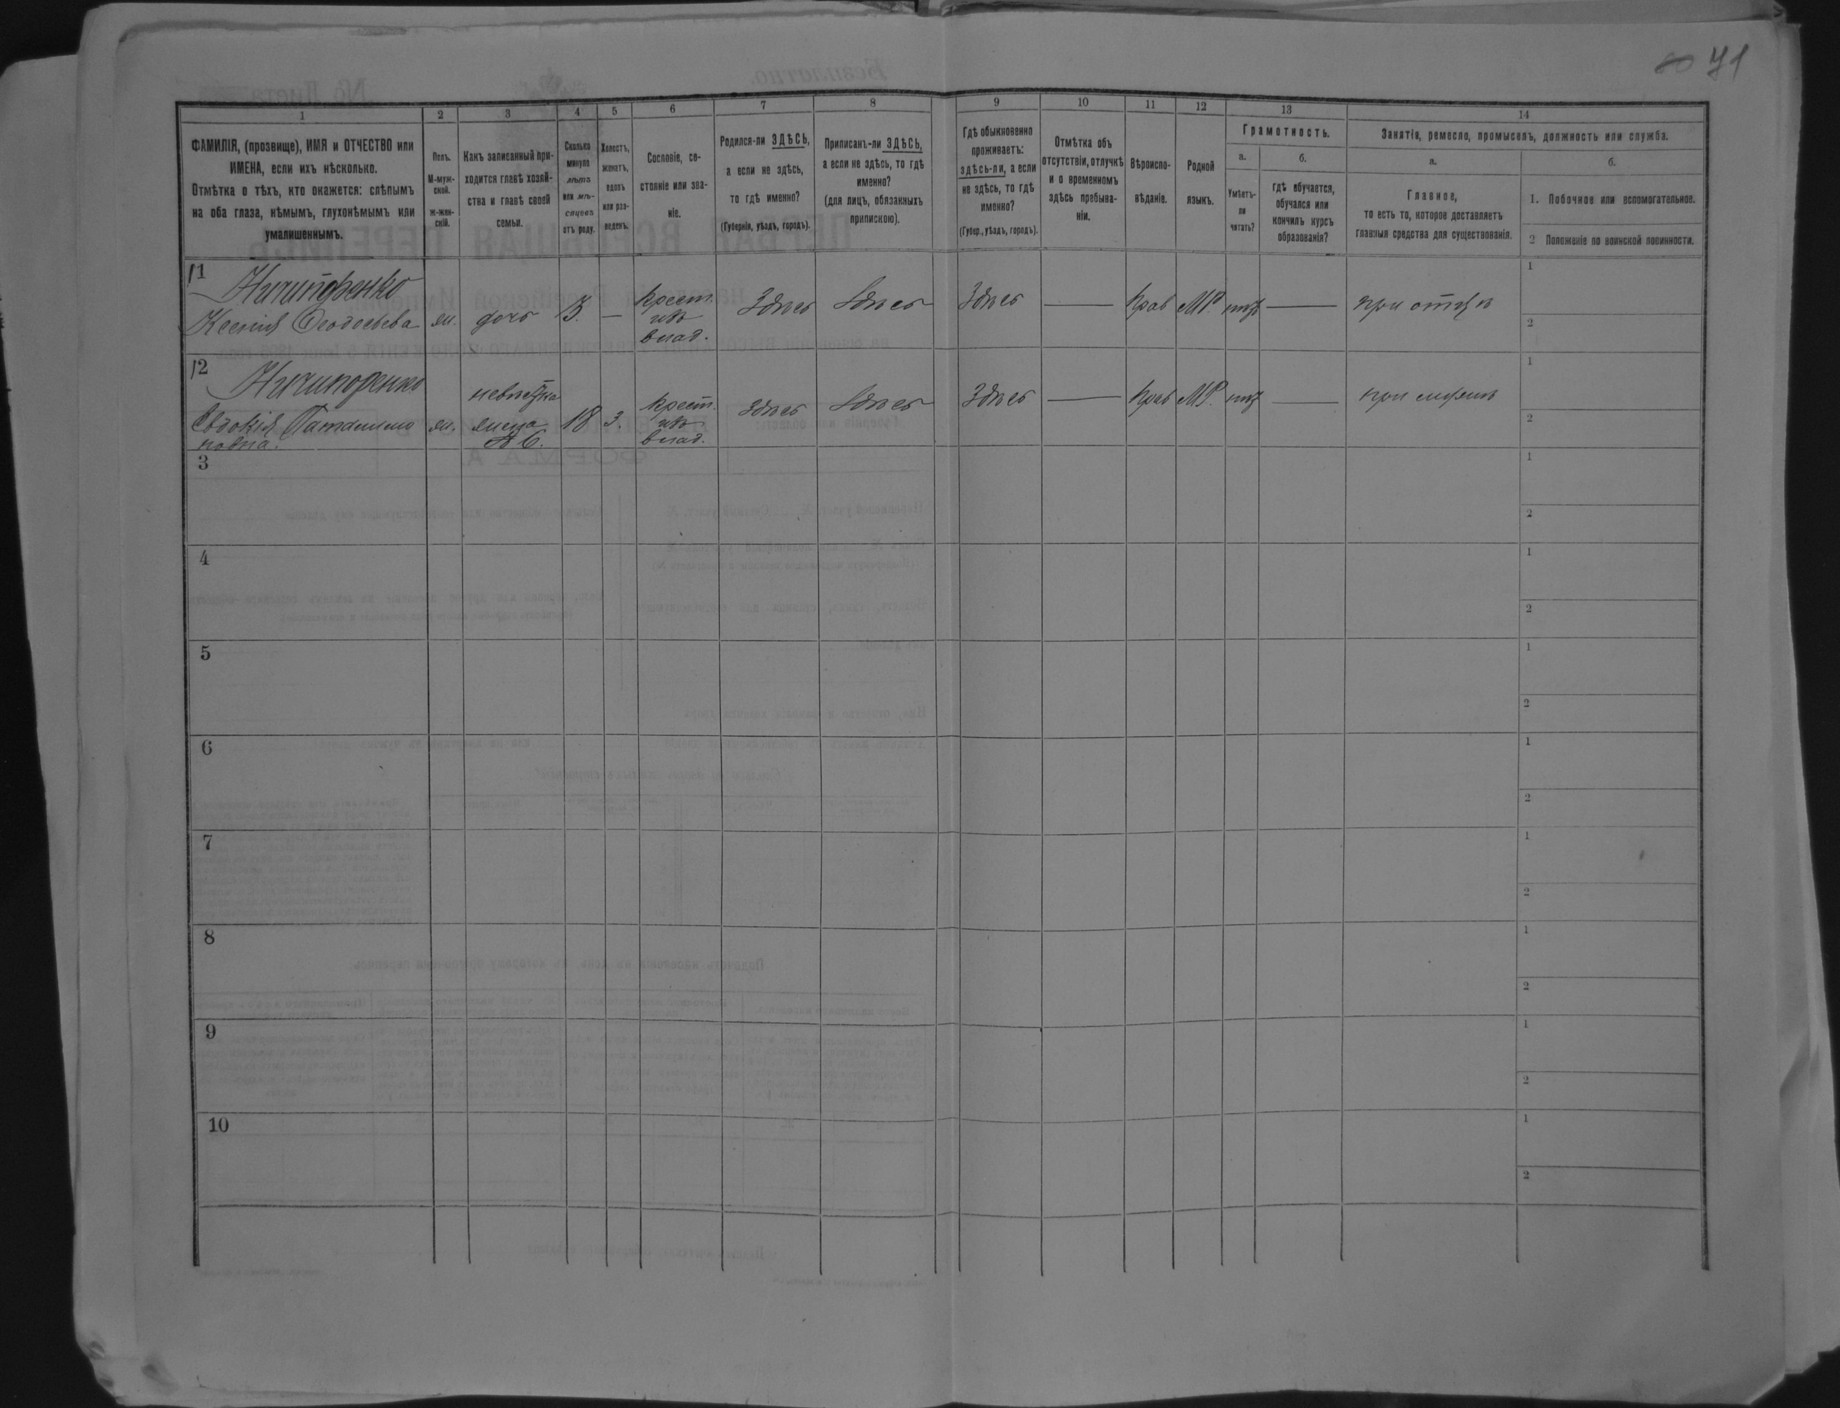 71
1 2 3 4 5 6 7 8 9 10 11 12 13 14
ФАМИЛІЯ, (прозвище), ИМЯ и ОТЧЕСТВО или
ИМЕНА, если ихъ нѣсколько.
Отмѣтка о тѣхъ, кто окажется: слѣпымъ
на оба глаза, нѣмымъ, глухонѣмымъ или
умалишеннымъ.
Полъ.
М-муж-
ской.
ж-жен-
скій.
Какъ записанный при-
ходится главѣ хозяй-
ства и главѣ своей
семьи.
Сколько
минуло
лѣтъ
или мѣ-
сяцевъ
отъ роду.
Холостъ,
женатъ,
вдовъ
или раз-
веденъ.
Сословіе, со-
стояніе или зва-
ніе.
Родился-ли ЗДѢСЬ,
а если не здѣсь,
то гдѣ именно?
(Губернія, уѣздъ, городъ).
Приписанъ-ли ЗДѢСЬ,
а если не здѣсь, то гдѣ
именно?
(для лицъ, обязанныхъ
припискою).
Гдѣ обыкновенно
проживаетъ:
здѣсь-ли, а если
не здѣсь, то гдѣ
именно?
(Губер., уѣздъ, городъ).
Отмѣтка объ
отсутствіи, отлучкѣ
и о временномъ
здѣсь пребыва-
ніи.
Вѣроиспо-
вѣданіе.
Родной
языкъ.
Грамотность.
а.
Умѣетъ-
ли
читать?
б.
гдѣ обучается,
обучался или
кончилъ курсъ
образованія?
Занятія, ремесло, промыселъ, должность или служба.
а.
Главное,
то есть то, которое доставляетъ
главныя средства для существованія.
б.
1. Побочное или вспомогательное.
2 Положеніе по воинской повинности.
11 Ничипоренко
Ксенія Феодосьева ж. дочь 3. — крест. изъ влад. Здѣсь Здѣсь Здѣсь — Прав МР. нтъ — при отцѣ 1
2
12 Ничипоренко
Евдокія ж. невѣстка 18 з. крест. изъ влад. Здѣсь Здѣсь Здѣсь — Прав МР. нтъ — при мужѣ 1
2
3 1
2
4 1
2
5 1
2
6 1
2
7 1
2
8 1
2
9 1
2
10 1
2